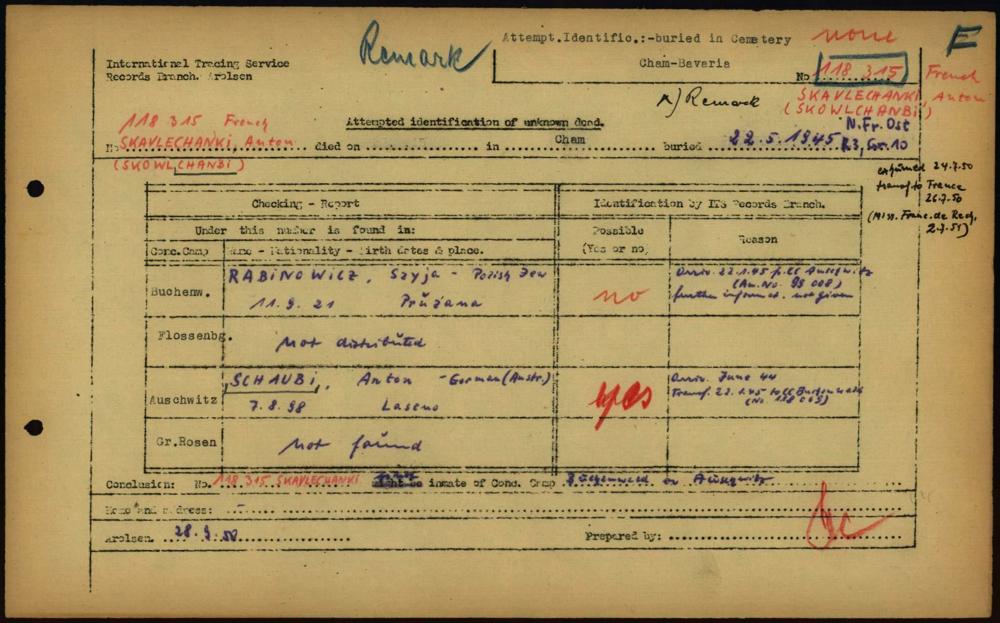 Remark
Attempt.Identific.:-buried in Cemetery none
E
International Tracing Service
Cham-Bavaria
Records Branch. Arolsen
No 118 315 French
x) Remark
SKAVLECHANKI, Anton
(SKOWLCHANBi)
118 315 French
Attempted identification of unknown dead.
N.Fr.Ost
No SKAVLECHANKI, Anton died on in Cham buried 22.5.1945 R3, Gr.10
(SKOWLCHANBi)
exhumed 24.7.50
transf to France
26.7.50
(Miss. Franc. de Rech.
2.7.51)
Checking - Report
Identification by ITS Records Branch.
Under this number is found in:
Possible
(Yes or no)
Reason
Conc.Camp
Name - Nationality - Birth dates & place.
Buchenw.
RABINOWICZ, Szyja - Polish Jew
11.9.21 Prużana
no
Arriv. 22.1.45 f. CC Auschwitz
(Au.No. 99 008)
further informat. not given
Flossenbg.
Not distributed
Auschwitz
SCHAUBi, Anton - German (Austr.)
7.8.98
yes
Arriv. June 44
Transf. 22.1.45 to CC Buchenwald
Gr.Rosen
Not found
Conclusion: No. 118 315 SKAVLECHANKI might be inmate of Conc. Camp Buchenwald or Auschwitz
Home and address: -
Arolsen, 28.9.50
Prepared by: